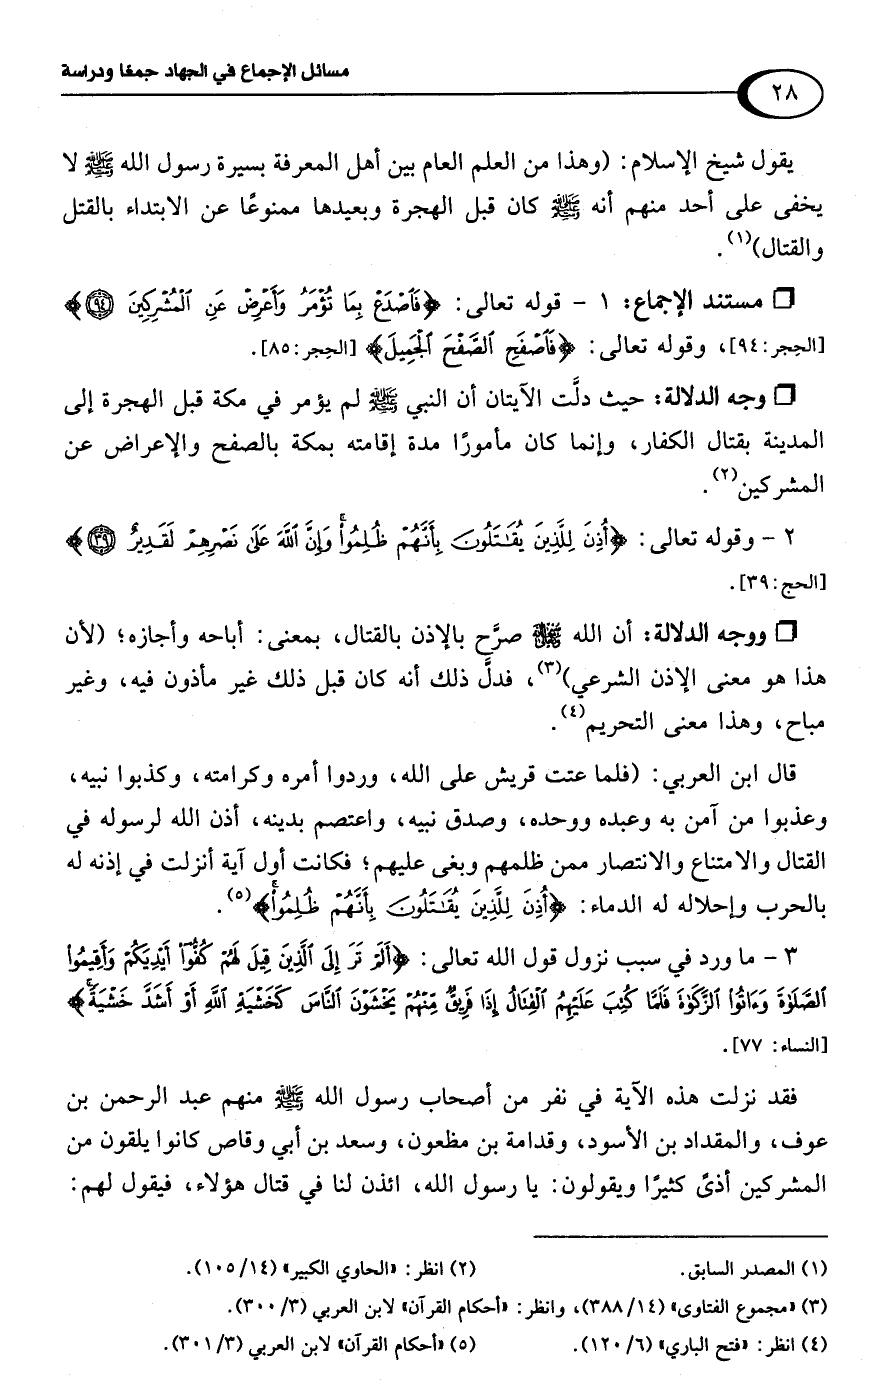 مسائل الإجماع في الجهاد جمعًا ودراسة
٢٨
يقول شيخ الإسلام: (وهذا من العلم العام بين أهل المعرفة بسيرة رسول الله ﷺ لا
يخفى على أحد منهم أنه ﷺ كان قبل الهجرة وبعيدها ممنوعًا عن الابتداء بالقتل
والقتال)(١).
❒ مستند الإجماع: ١ - قوله تعالى: ﴿فَٱصۡدَعۡ بِمَا تُؤۡمَرُ وَأَعۡرِضۡ عَنِ ٱلۡمُشۡرِكِينَ ٩٤﴾
[الحِجر:٩٤]، وقوله تعالى: ﴿فَٱصۡفَحِ ٱلصَّفۡحَ ٱلۡجَمِيلَ﴾ [الحِجر:٨٥].
❒ وجه الدلالة: حيث دلَّت الآيتان أن النبي ﷺ لم يؤمر في مكة قبل الهجرة إلى
المدينة بقتال الكفار، وإنما كان مأمورًا مدة إقامته بمكة بالصفح والإعراض عن
المشركين(٢).
٢ - وقوله تعالى: ﴿أُذِنَ لِلَّذِينَ يُقَٰتَلُونَ بِأَنَّهُمۡ ظُلِمُواْۚ وَإِنَّ ٱللَّهَ عَلَىٰ نَصۡرِهِمۡ لَقَدِيرٌ ٣٩﴾
[الحج:٣٩].
❒ ووجه الدلالة: أن الله صرَّح بالإذن بالقتال، بمعنى: أباحه وأجازه؛ (لأن
هذا هو معنى الإذن الشرعي)(٣)، فدلَّ ذلك أنه كان قبل ذلك غير مأذون فيه، وغير
مباح، وهذا معنى التحريم(٤).
قال ابن العربي: (فلما عتت قريش على الله، وردوا أمره وكرامته، وكذبوا نبيه،
وعذبوا من آمن به وعبده ووحده، وصدق نبيه، واعتصم بدينه، أذن الله لرسوله في
القتال والامتناع والانتصار ممن ظلمهم وبغى عليهم؛ فكانت أول آية أنزلت في إذنه له
بالحرب وإحلاله له الدماء: ﴿أُذِنَ لِلَّذِينَ يُقَٰتَلُونَ بِأَنَّهُمۡ ظُلِمُواْۚ﴾(٥).
٣ - ما ورد في سبب نزول قول الله تعالى: ﴿أَلَمۡ تَرَ إِلَى ٱلَّذِينَ قِيلَ لَهُمۡ كُفُّوٓاْ أَيۡدِيَكُمۡ وَأَقِيمُواْ
ٱلصَّلَوٰةَ وَءَاتُواْ ٱلزَّكَوٰةَ فَلَمَّا كُتِبَ عَلَيۡهِمُ ٱلۡقِتَالُ إِذَا فَرِيقٌ مِّنۡهُمۡ يَخۡشَوۡنَ ٱلنَّاسَ كَخَشۡيَةِ ٱللَّهِ أَوۡ أَشَدَّ خَشۡيَةٗۚ﴾
[النساء: ٧٧].
فقد نزلت هذه الآية في نفر من أصحاب رسول الله ﷺ منهم عبد الرحمن بن
عوف، والمقداد بن الأسود، وقدامة بن مظعون، وسعد بن أبي وقاص كانوا يلقون من
المشركين أذىً كثيرًا ويقولون: يا رسول الله، ائذن لنا في قتال هؤلاء، فيقول لهم:
(١) المصدر السابق. (٢) انظر: «الحاوي الكبير» (١٤/ ١٠٥).
(٣) «مجموع الفتاوى» (١٤/ ٣٨٨)، وانظر: «أحكام القرآن» لابن العربي (٣/ ٣٠٠).
(٤) انظر: «فتح الباري» (٦/ ١٢٠). (٥) «أحكام القرآن» لابن العربي (٣/ ٣٠١).